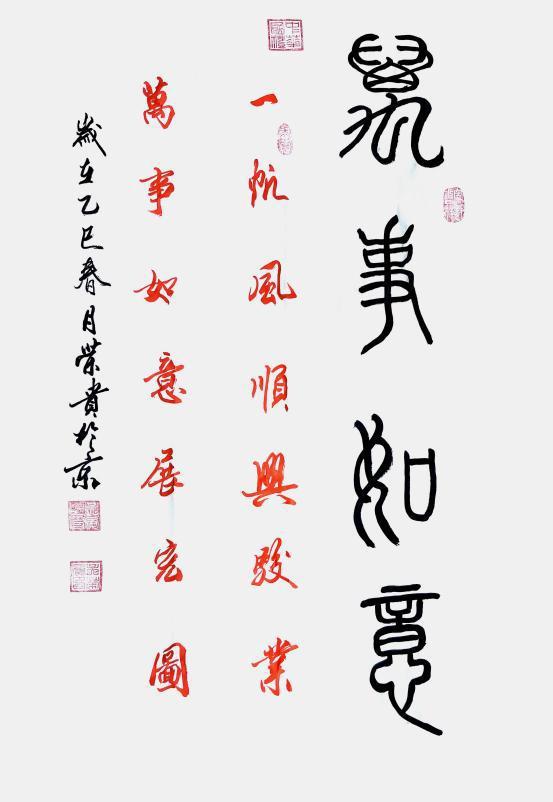 萬事如意
一帆風順興駿業
萬事如意展宏圖
歲在乙巳春月榮貴於京